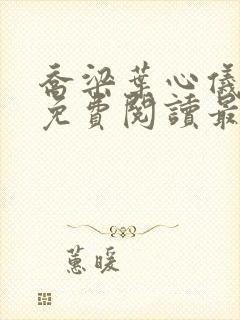 喬梁葉心儀
免費閱讀最
蕙暖